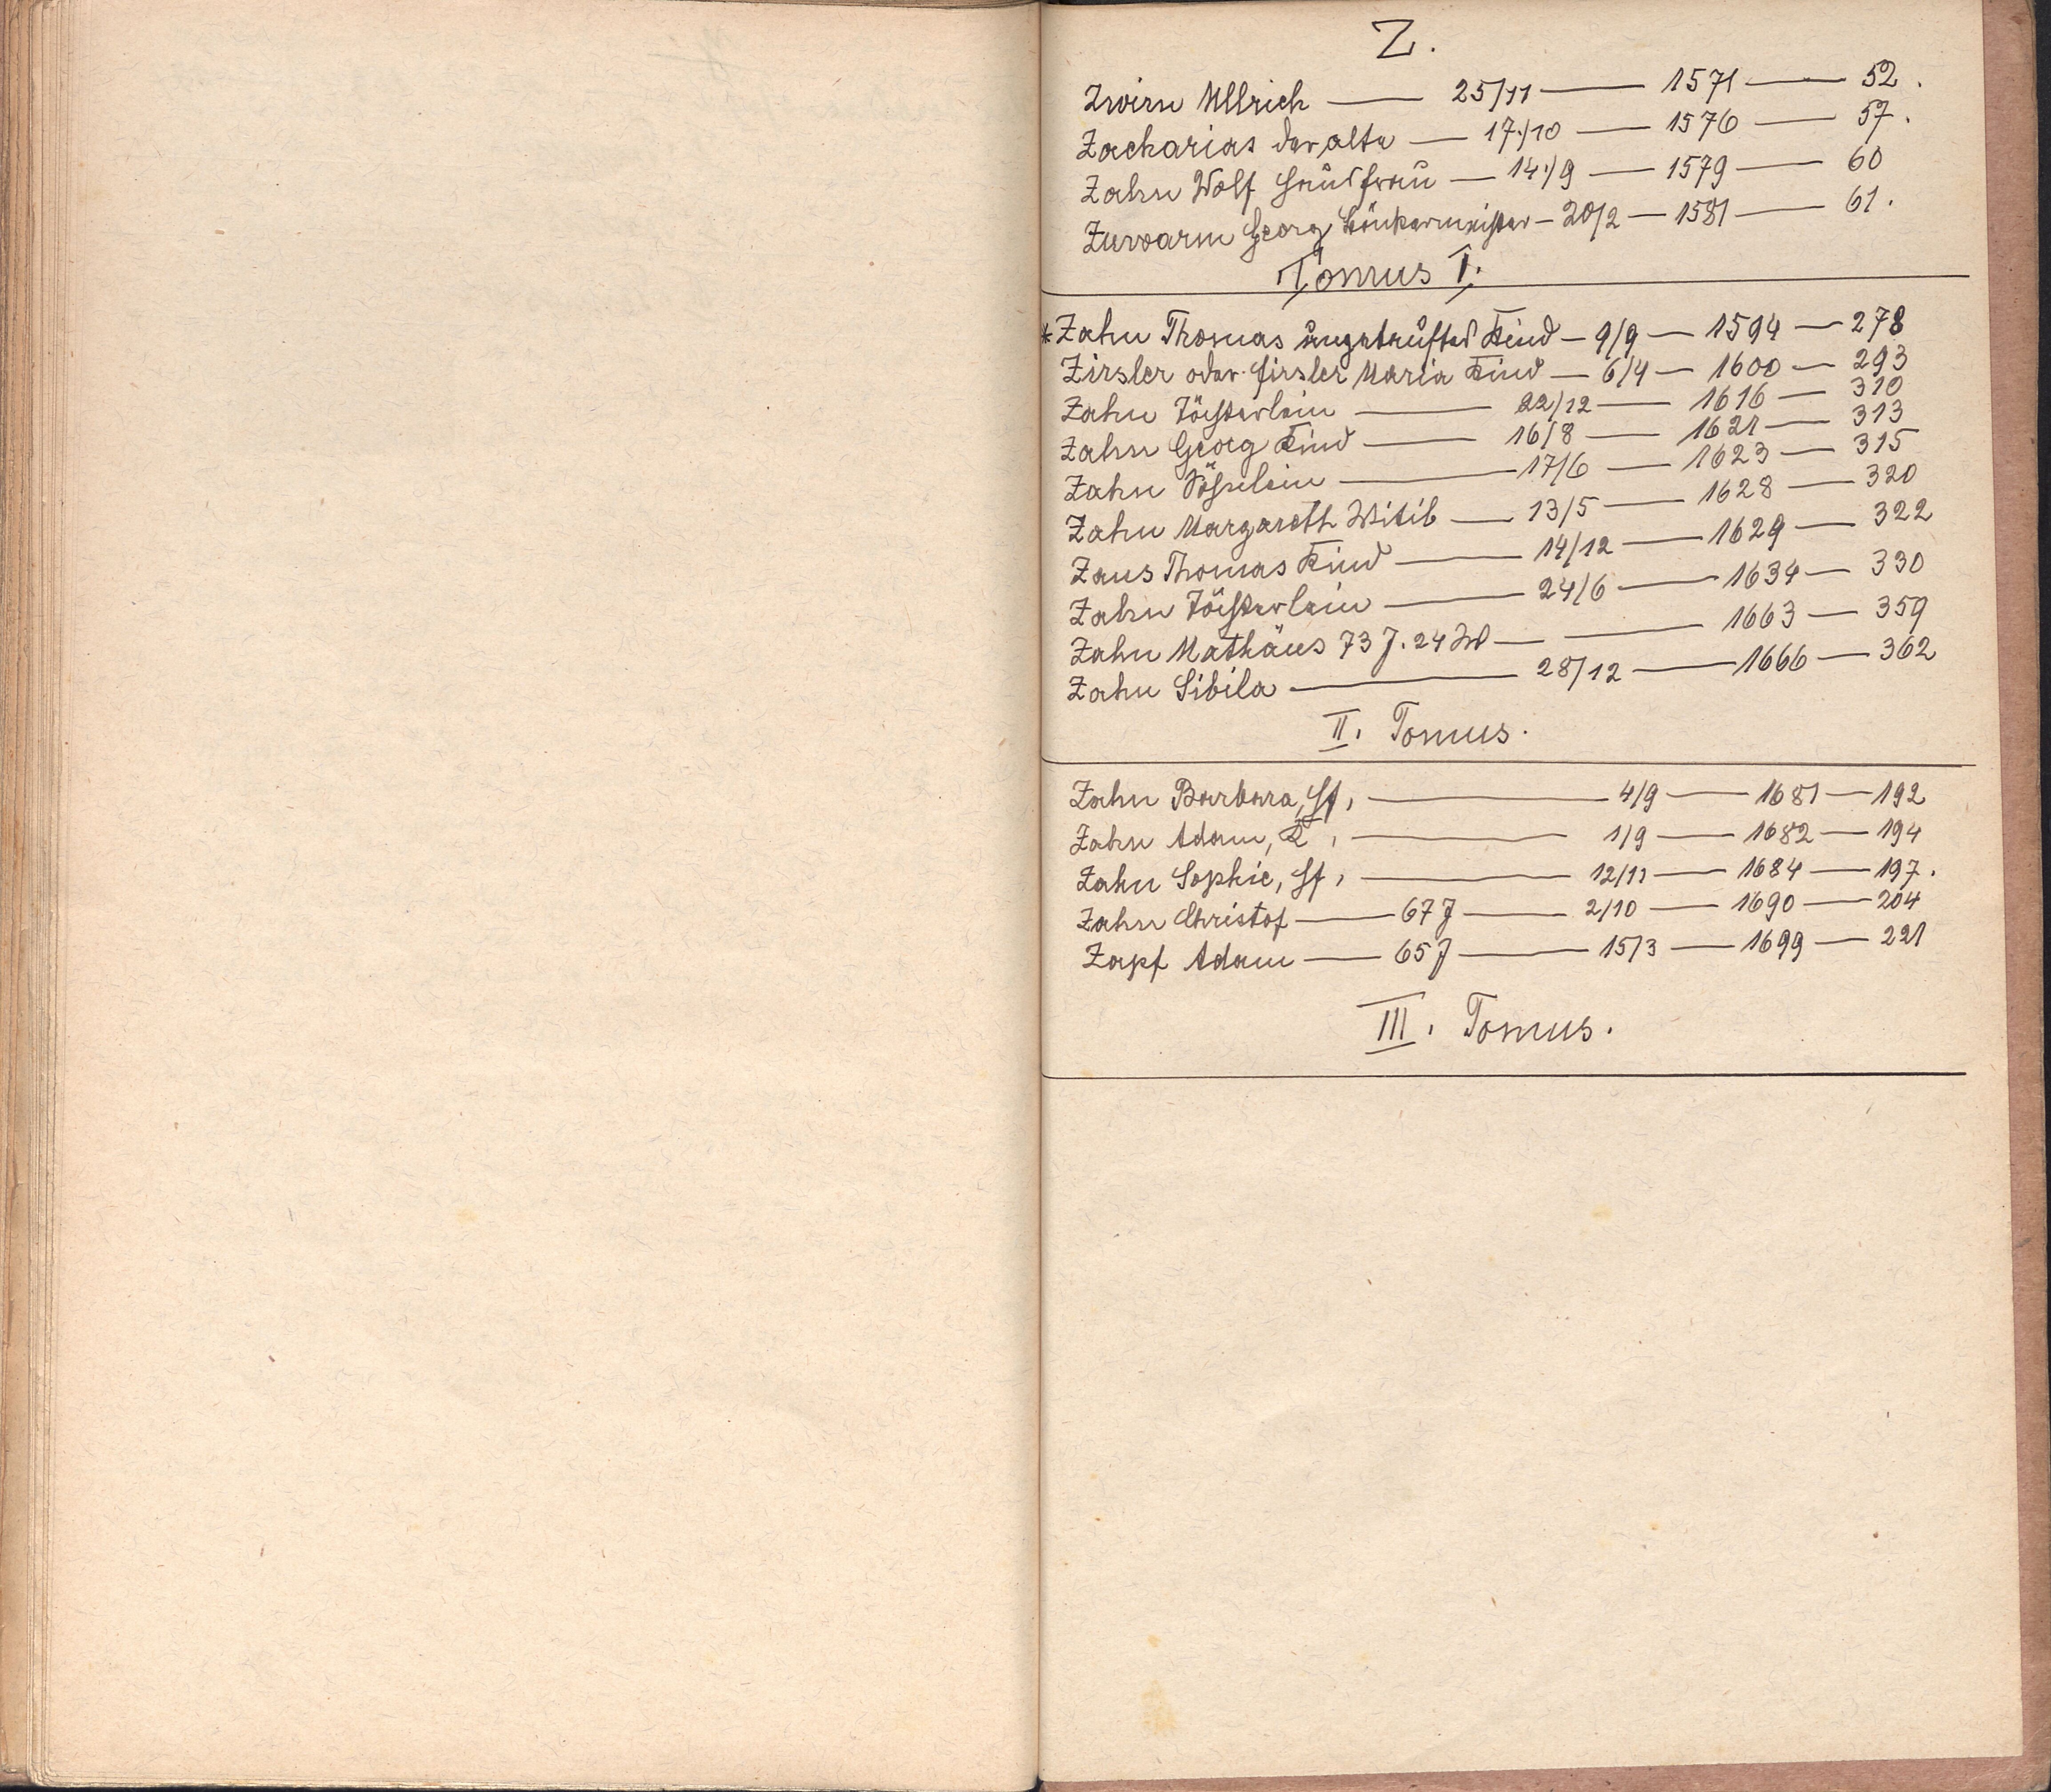 Z.
Zwirn Ullrich — 25/11 — 1571 — 52.
Zacharias der alte — 17./10 — 1576 — 57.
Zahn Wolf Hausfrau — 14./9 — 1579 — 60
Zuwarm Georg — 20/2 — 1581 — 61.
Tomus I.
* Zahn Thomas ungetauftes Kind — 9/9 — 1594 — 278
Zirsler oder Firsler Maria Kind — 6/4 — 1600 — 293
Zahn Töchterlein — 22/12 — 1616 — 310
Zahn Georg Kind — 16/8 — 1621 — 313
Zahn Söhnlein — 17/6 — 1623 — 315
Zahn Margareth Witib — 13/5 — 1628 — 320
Zaus Thomas Kind — 14/12 — 1629 — 322
Zahn Töchterlein — 24/6 — 1634 — 330
Zahn Mathäus 73 J. 24 W — — 1663 — 359
Zahn Sibila — 28/12 — 1666 — 362
II. Tomus.
Zahn Barbara, Hf, — 4/9 — 1681 — 192
Zahn Adam, K, — 1/9 — 1682 — 194
Zahn Sophie, Hf, — 12/11 — 1684 — 197.
Zahn Christof — 67 J — 2/10 — 1690 — 204
Zapf Adam — 65 J — 15/3 — 1699 — 221
III. Tomus.